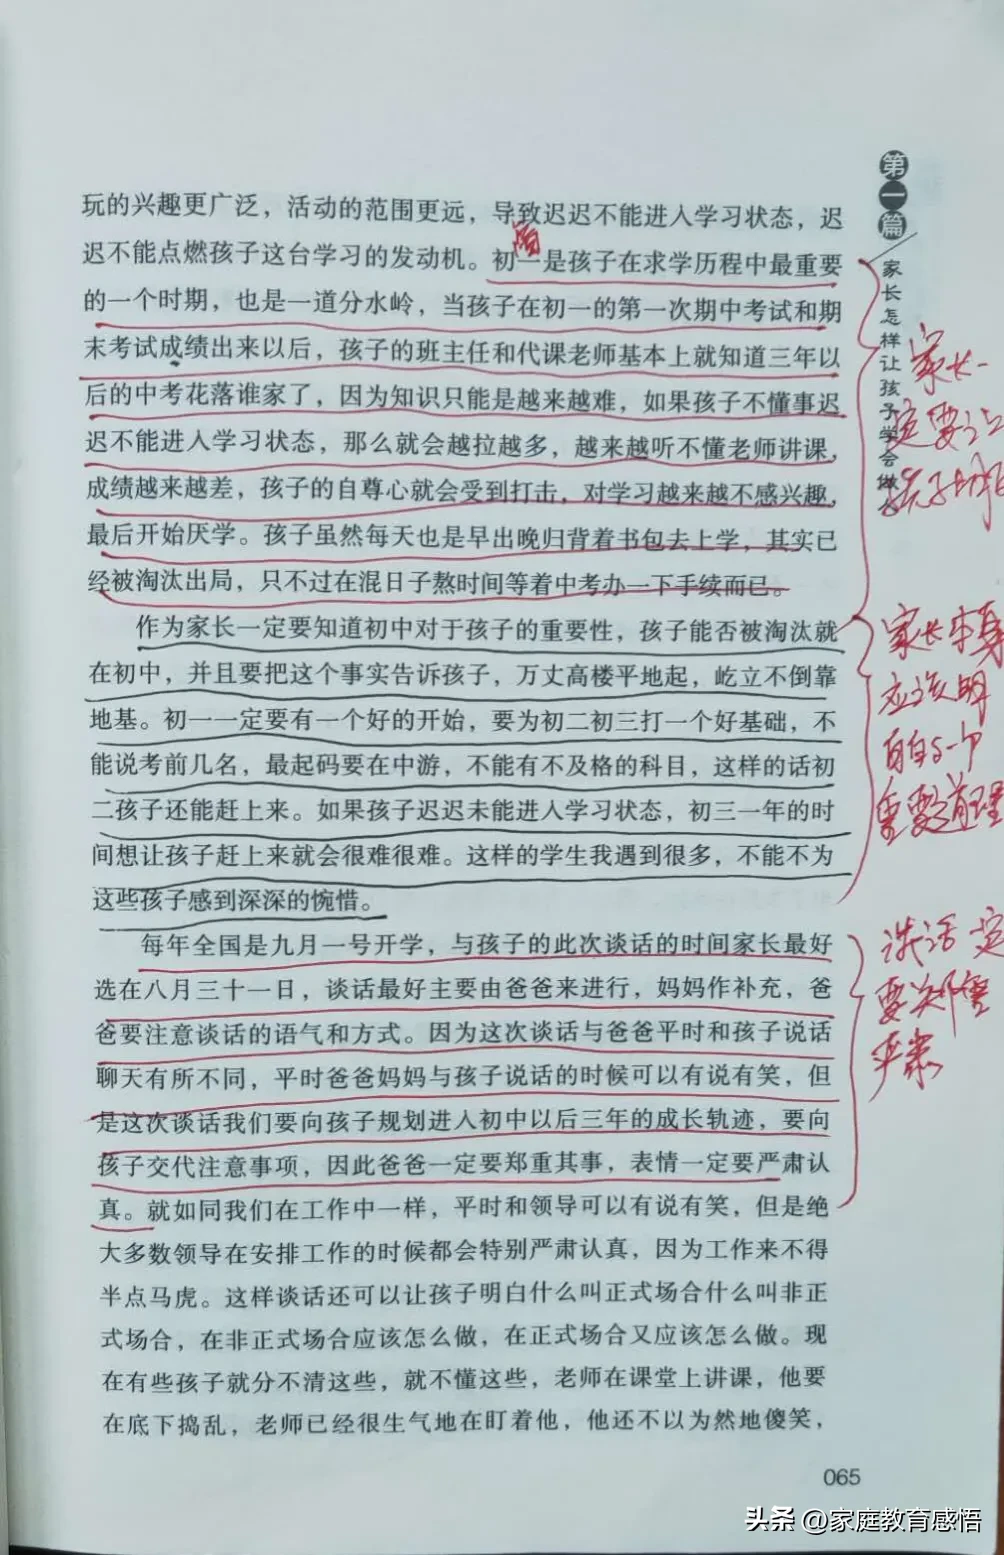 玩的兴趣更广泛，活动的范围更远，导致迟迟不能进入学习状态，迟
迟不能点燃孩子这台学习的发动机。初一是孩子在求学历程中最重要
的一个时期，也是一道分水岭，当孩子在初一的第一次期中考试和期
末考试成绩出来以后，孩子的班主任和代课老师基本上就知道三年以
后的中考花落谁家了，因为知识只能是越来越难，如果孩子不懂事迟
迟不能进入学习状态，那么就会越拉越多，越来越听不懂老师讲课，
成绩越来越差，孩子的自尊心就会受到打击，对学习越来越不感兴趣，
最后开始厌学。孩子虽然每天也是早出晚归背着书包去上学，其实已
经被淘汰出局，只不过在混日子熬时间等着中考办一下手续而已。
作为家长一定要知道初中对于孩子的重要性，孩子能否被淘汰就
在初中，并且要把这个事实告诉孩子，万丈高楼平地起，屹立不倒靠
地基。初一一定要有一个好的开始，要为初二初三打一个好基础，不
能说考前几名，最起码要在中游，不能有不及格的科目，这样的话初
二孩子还能赶上来。如果孩子迟迟未能进入学习状态，初三一年的时
间想让孩子赶上来就会很难很难。这样的学生我遇到很多，不能不为
这些孩子感到深深的惋惜。
每年全国是九月一号开学，与孩子的此次谈话的时间家长最好
选在八月三十一日，谈话最好主要由爸爸来进行，妈妈作补充，爸
爸要注意谈话的语气和方式。因为这次谈话与爸爸平时和孩子说话
聊天有所不同，平时爸爸妈妈与孩子说话的时候可以有说有笑，但
是这次谈话我们要向孩子规划进入初中以后三年的成长轨迹，要向
孩子交代注意事项，因此爸爸一定要郑重其事，表情一定要严肃认
真。就如同我们在工作中一样，平时和领导可以有说有笑，但是绝
大多数领导在安排工作的时候都会特别严肃认真，因为工作来不得
半点马虎。这样谈话还可以让孩子明白什么叫正式场合什么叫非正
式场合，在非正式场合应该怎么做，在正式场合又应该怎么做。现
在有些孩子就分不清这些，就不懂这些，老师在课堂上讲课，他要
在底下捣乱，老师已经很生气地在盯着他，他还不以为然地傻笑，
第一篇
家长怎样让孩子学会做人
家长一
定要让
孩子明白
家长本身
应该明
白这一个
重要道理
谈话一定
要郑重
严肃
065
头条 @家庭教育感悟